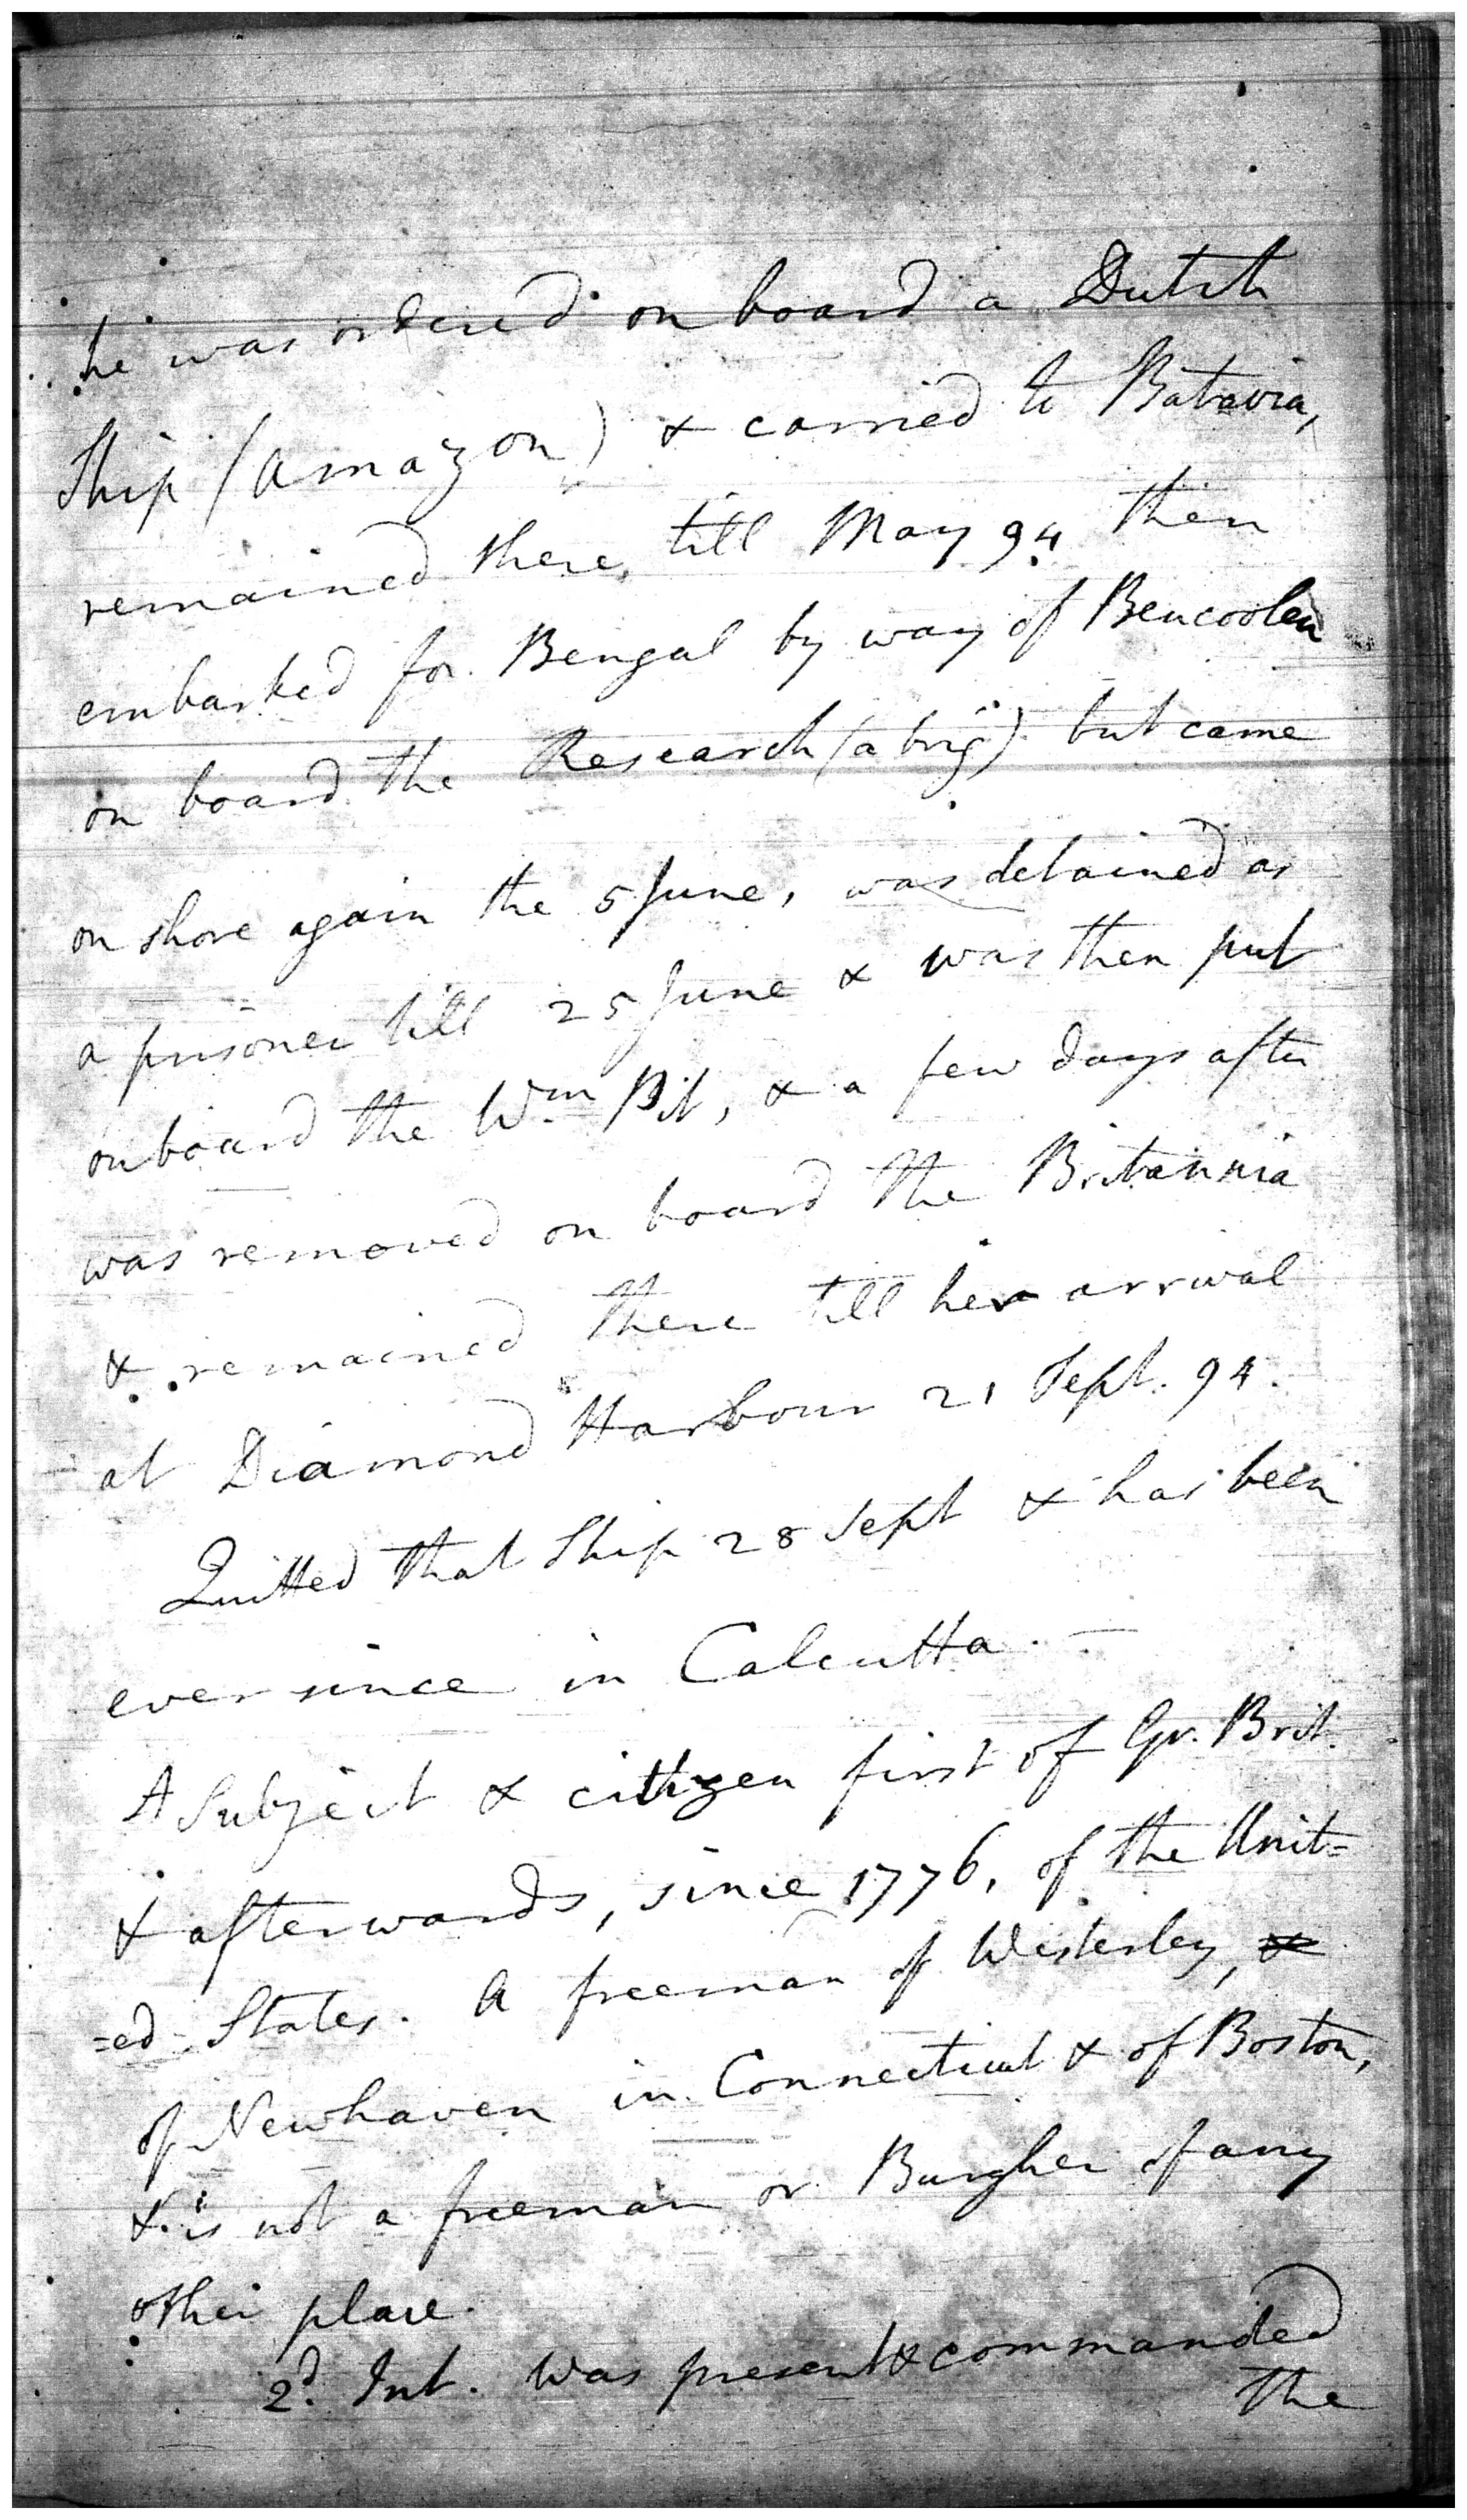 he was ordered on board a Dutch
Ship (Amazon) & carried to Batavia,
remained there, till May 94 then
embarked for Bengal by way of Bencoolen
on board the Research (a brig) but came
on shore again the 5 June, was detained as
a prisoner till 25 June & was then put
on board the Wm Pit, & a few days after
was removed on board the Britannia
& remained there till her arrival
at Diamond Harbour 21 Sept. 94.
Quitted that Ship 28 Sept & has been
ever since in Calcutta. —
A Subject & citizen first of Gr. Brit.
& afterwards, since 1776, of the Unit=
=ed States. A freeman of Westerley, &
of Newhaven in Connecticut & of Boston,
& is not a freeman or Burgher of any
other place.
2d. Int. Was present & commanded
the